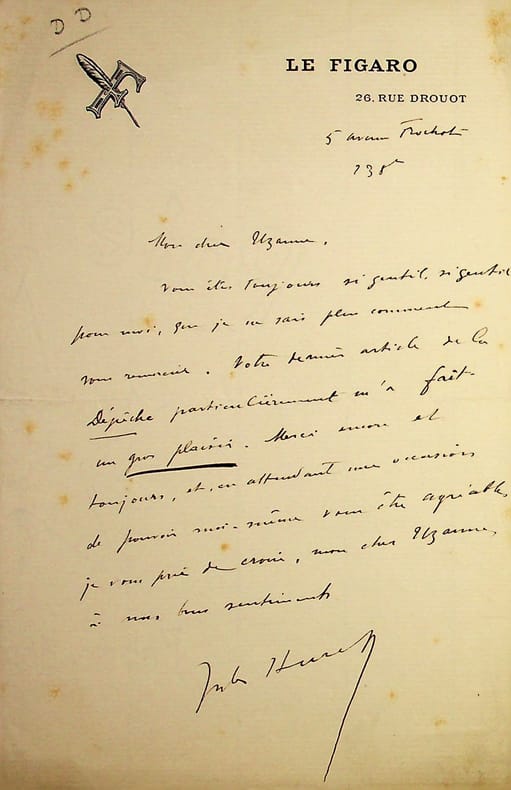 D D
F
LE FIGARO
26. RUE DROUOT
5 avenue Frochot
Mon cher Uzanne,
Vous êtes toujours si gentil, si gentil
pour moi, que je ne sais plus comment
vous remercier. Votre dernier article de la
Dépêche particulièrement m'a fait
un gros plaisir. Merci encore et
toujours, et, en attendant une occasion
de pouvoir moi-même vous être agréable,
je vous prie de croire, mon cher Uzanne,
à mes bons sentiments
Jules Huret